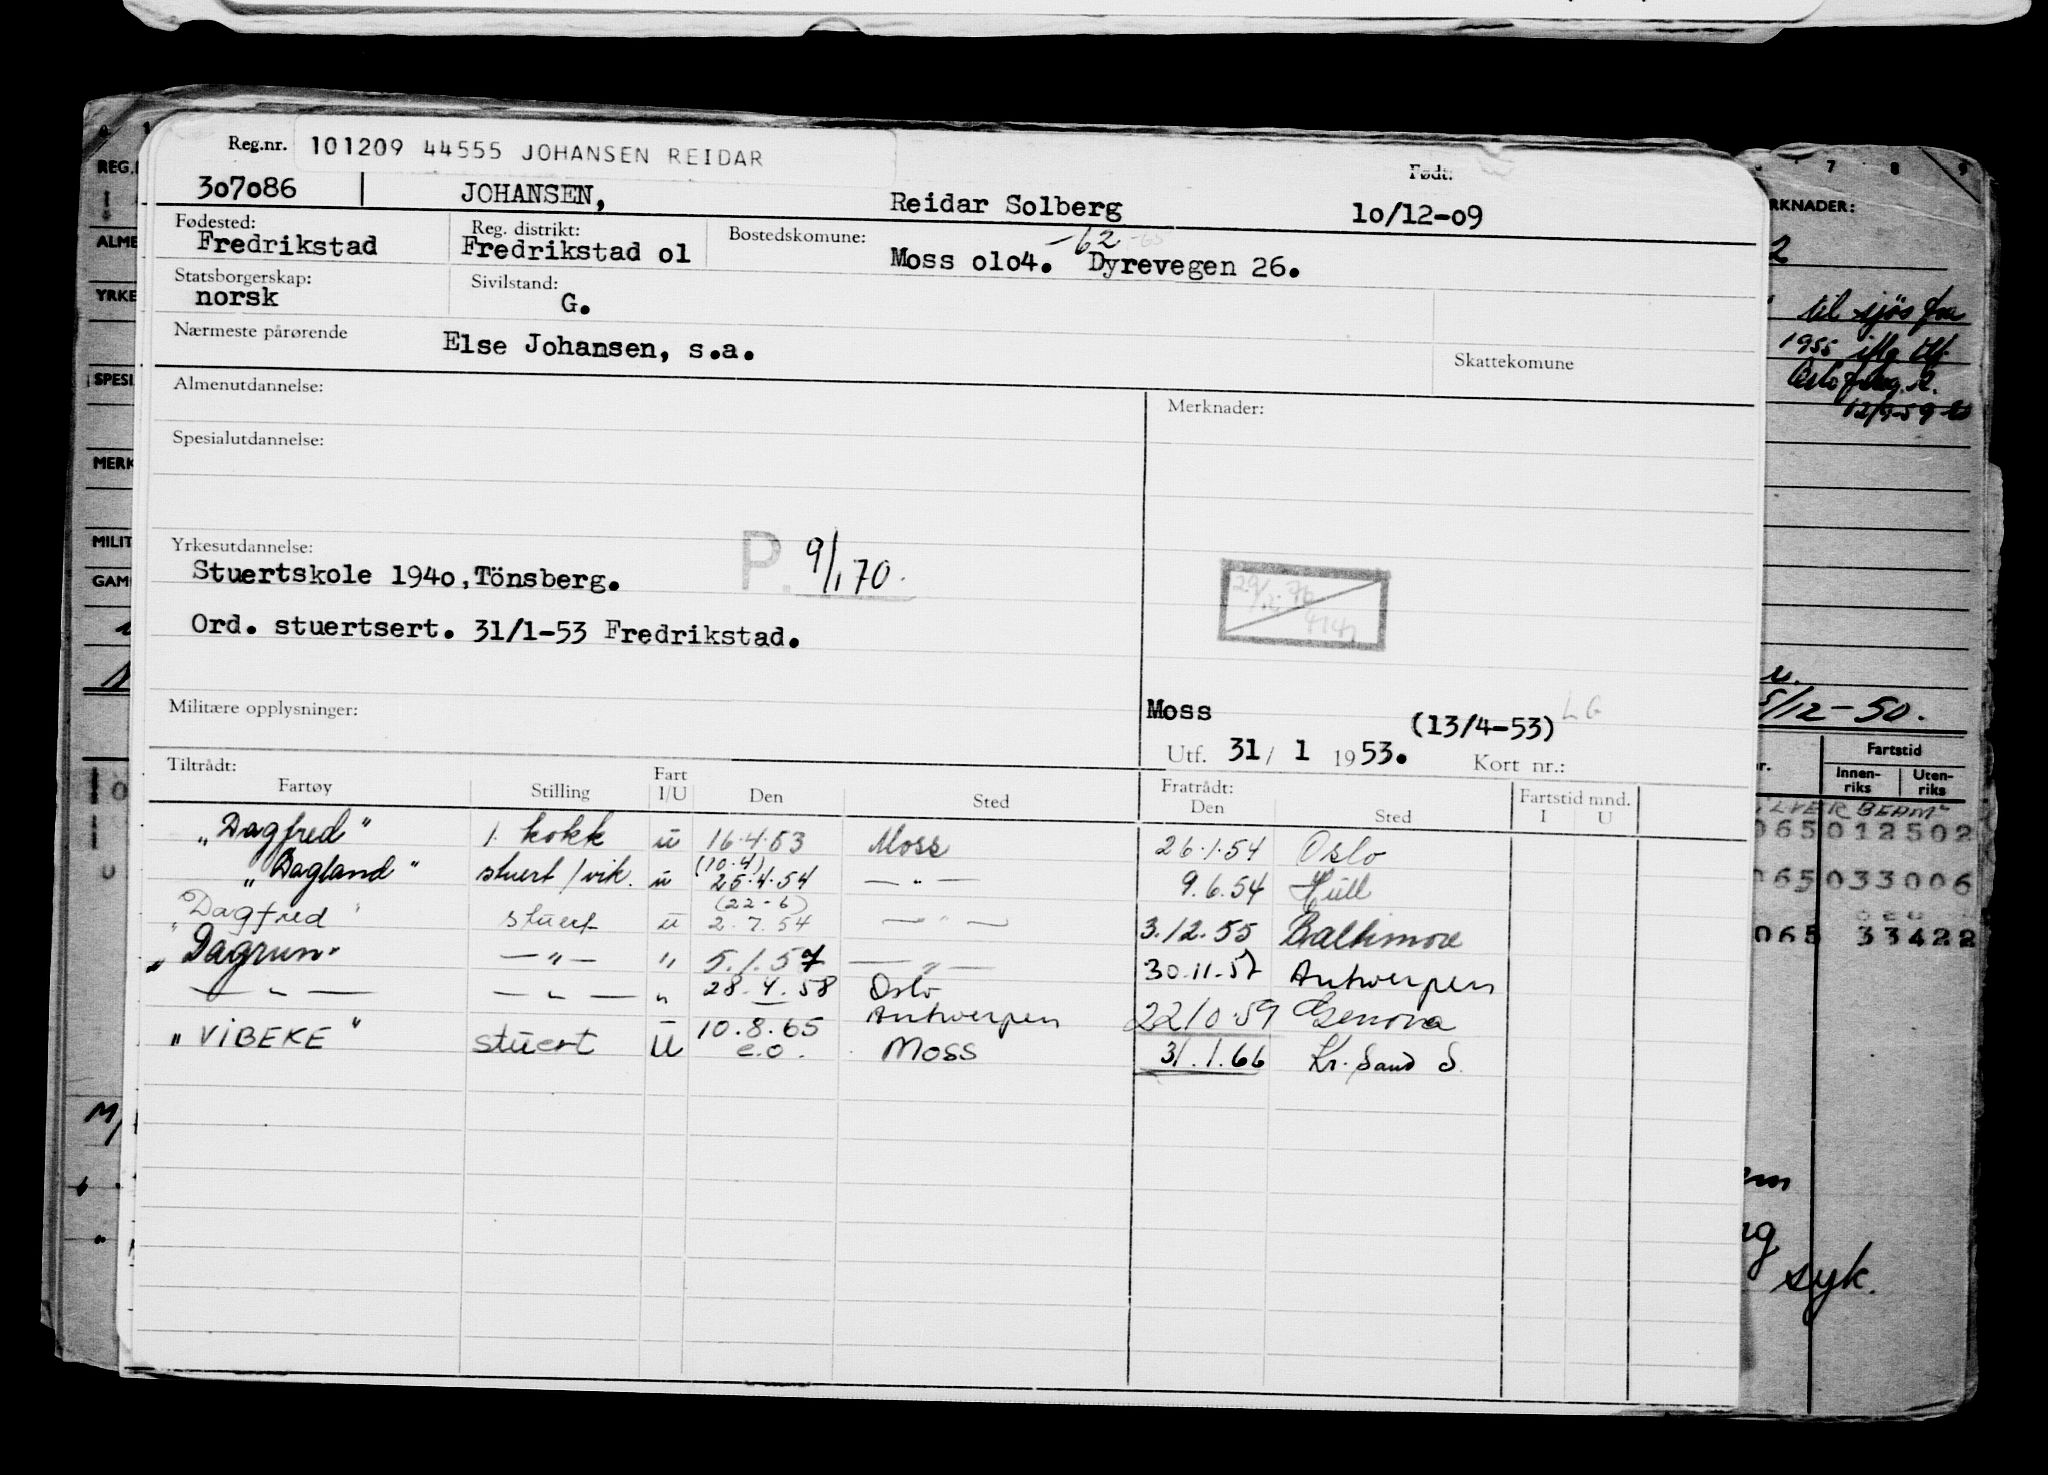 Reg.nr. 101209 44555 JOHANSEN REIDAR
Født:
307086 JOHANSEN, Reidar Solberg 10/12-09
Fødested: Reg. distrikt: Bostedskomune: -62
Fredrikstad Fredrikstad 01 Moss 0104. Dyrevegen 26.
Statsborgerskap: Sivilstand:
norsk G.
Nærmeste pårørende Else Johansen, s.a. Skattekomune
Almenutdannelse: Merknader:
Spesialutdannelse:
Yrkesutdannelse: P. 9/1 70.
Stuertskole 1940, Tönsberg.
Ord. stuertsert. 31/1-53 Fredrikstad.
Militære opplysninger: Moss (13/4-53) LG
Utf. 31/ 1 1953. Kort nr.:
Tiltrådt: Fratrådt:
Fartøy Stilling Fart I/U Den Sted Den Sted Fartstid mnd. I U
"Dagfred" 1. kokk u 16.4.53 Moss 26.1.54 Oslo
"Dagland" stuert/vik. u (10.4) 25.4.54 — " — 9.6.54 Hull
"Dagfred" stuert u (22-6) 2.7.54 — " — 3.12.55 Baltimore
"Dagrun" — " — " 5.1.57 — " — 30.11.57 Antwerpen
— " — — " — " 28.4.58 Oslo
Antwerpen 22/10.59 Genova
"VIBEKE" stuert U 10.8.65 e.o. Moss 31.1.66 Kr. Sand S.
REG.
ALME
YRKE
SPESI
MERK
MILIT
GAM
7 8 9
RKNADER:
2
til sjøs fra
1955
12/5-59
5/12-50.
Fartstid
Innenriks Utenriks
065 012502
065 033006
065 33422
M/
syk.